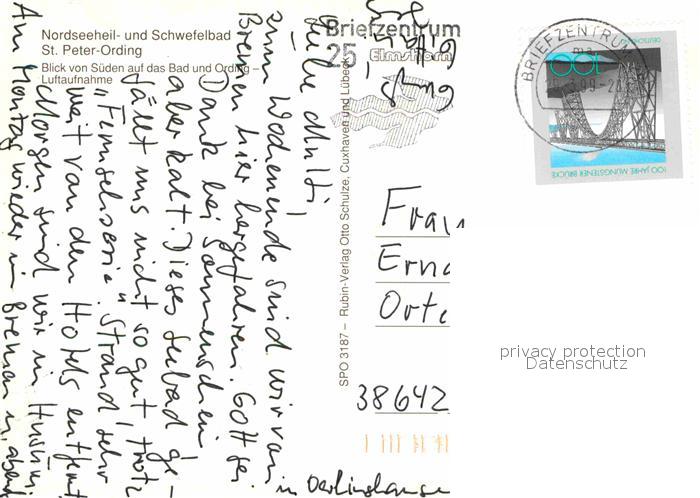 Nordseeheil- und Schwefelbad
St. Peter-Ording
Blick von Süden auf das Bad und Ording –
Luftaufnahme
Briefzentrum
25
Elmshorn
SPO 3187 – Rubin-Verlag Otto Schulze, Cuxhaven und Lübeck
Liebe Mutti,
zum Wochenende sind wir von
Bremen hier hergefahren. Gott sei
Dank bei Sonnenschein
aber kalt. Dieses Seebad ge-
fällt mir nicht so gut, trotz
"Fernsehserie". Strand sehr
weit von den Hotels entfernt
Morgen sind wir in Husum,
Am Montag wieder in Bremen u. abends
in Oerlinghausen
Frau
Erna
38642
BRIEFZENTRUM
99-20
DEUTSCHLAND
100
100 JAHRE MÜNGSTENER BRÜCKE
privacy protection
Datenschutz